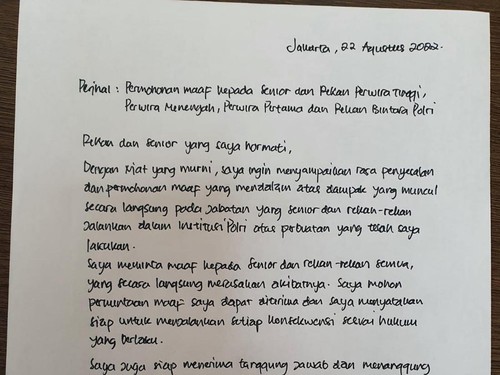 Jakarta, 22 Agustus 2022.
Perihal : Permohonan maaf kepada Senior dan Rekan Perwira Tinggi,
Perwira Menengah, Perwira Pertama dan Rekan Bintara Polri
Rekan dan senior yang saya hormati,
Dengan niat yang murni, saya ingin menyampaikan rasa penyesalan
dan permohonan maaf yang mendalam atas dampak yang muncul
secara langsung pada jabatan yang senior dan rekan-rekan
jalankan dalam institusi Polri atas perbuatan yang telah saya
lakukan.
Saya meminta maaf kepada senior dan rekan-rekan semua,
yang secara langsung merasakan akibatnya. Saya mohon
permintaan maaf saya dapat diterima dan saya menyatakan
siap untuk menjalankan setiap konsekwensi sesuai hukum
yang berlaku.
Saya juga siap menerima tanggung jawab dan menanggung